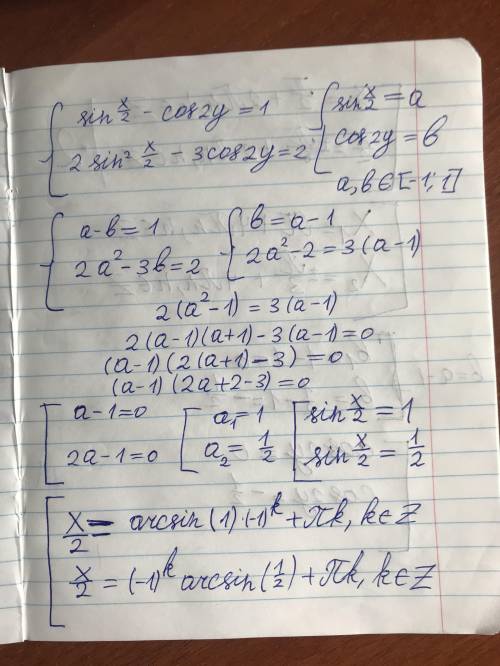 { sin x/2 - cos2y = 1 { sin x/2 = a
2 sin² x/2 - 3cos2y = 2 cos2y = b
a, b ∈ [-1; 1]
{ a-b=1 { b=a-1
2a²-3b=2 2a²-2=3(a-1)
2(a²-1)=3(a-1)
2(a-1)(a+1)-3(a-1)=0
(a-1)(2(a+1)-3)=0
(a-1)(2a+2-3)=0
[ a-1=0 [ a₁=1 [ sin x/2 = 1
2a-1=0 a₂=1/2 sin x/2 = 1/2
[ x/2 = arcsin(1)·(-1)^k + πk, k∈Z
x/2 = (-1)^k arcsin(1/2) + πk, k∈Z